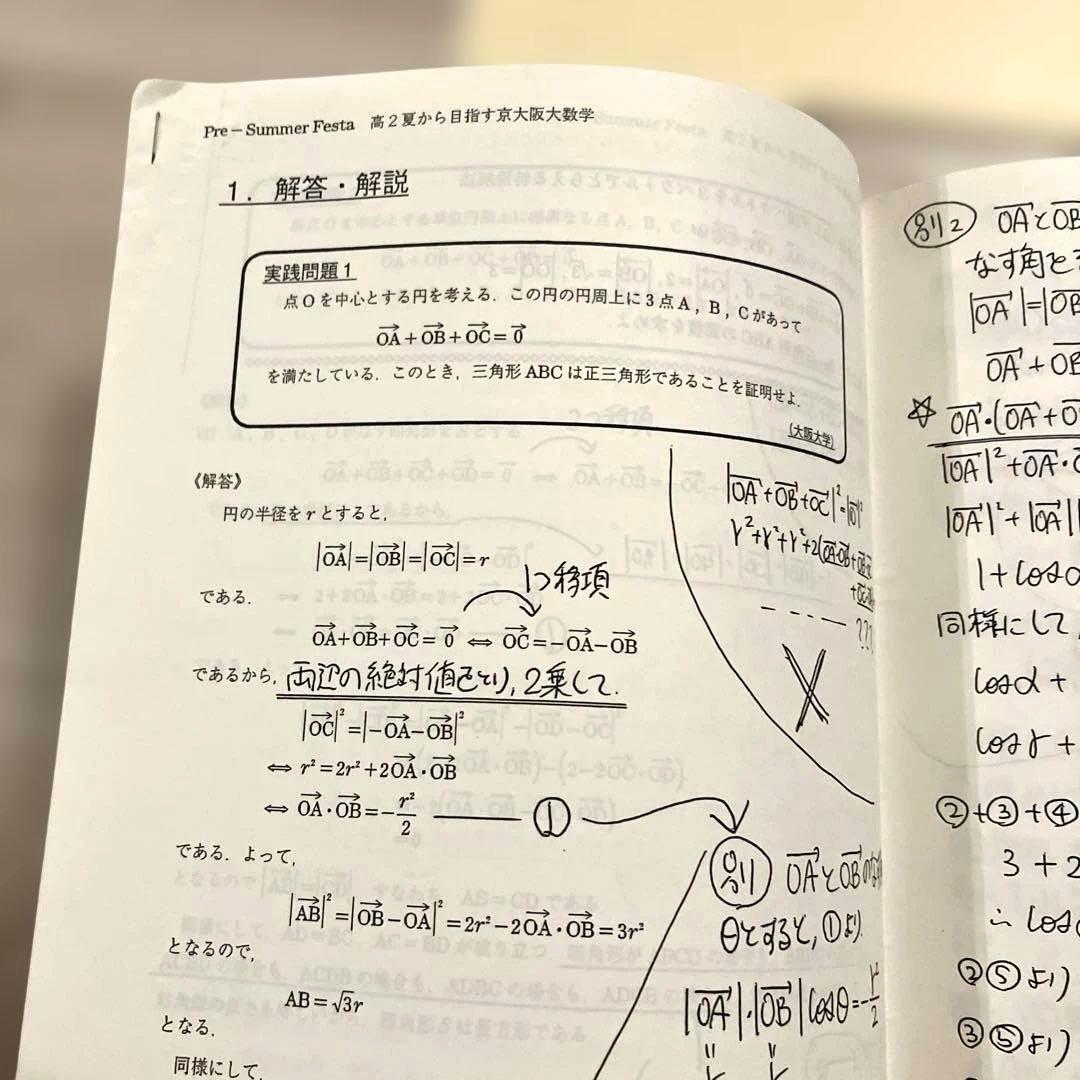 Pre－Summer Festa 高2夏から目指す京大阪大数学
1．解答・解説
実践問題1
点Oを中心とする円を考える．この円の円周上に3点A，B，Cがあって
$\overrightarrow{OA}+\overrightarrow{OB}+\overrightarrow{OC}=\vec{0}$
を満たしている．このとき，三角形ABCは正三角形であることを証明せよ．
(大阪大学)
《解答》
円の半径をrとすると，
$|\overrightarrow{OA}|=|\overrightarrow{OB}|=|\overrightarrow{OC}|=r$
である．
1つ移項
$\overrightarrow{OA}+\overrightarrow{OB}+\overrightarrow{OC}=\vec{0} \Leftrightarrow \overrightarrow{OC}=-\overrightarrow{OA}-\overrightarrow{OB}$
であるから，両辺の絶対値をとり，2乗して．
$|\overrightarrow{OC}|^2=|-\overrightarrow{OA}-\overrightarrow{OB}|^2$
$\Leftrightarrow r^2=2r^2+2\overrightarrow{OA}\cdot\overrightarrow{OB}$
$\Leftrightarrow \overrightarrow{OA}\cdot\overrightarrow{OB}=-\frac{r^2}{2}$ ―― ①
である．よって，
$|\overrightarrow{AB}|^2=|\overrightarrow{OB}-\overrightarrow{OA}|^2=2r^2-2\overrightarrow{OA}\cdot\overrightarrow{OB}=3r^2$
となるので，
$AB=\sqrt{3}r$
となる．
同様にして，
$|\overrightarrow{OA}+\overrightarrow{OB}+\overrightarrow{OC}|^2=|\vec{0}|^2$
$r^2+r^2+r^2+2(\overrightarrow{OA}\cdot\overrightarrow{OB}+\overrightarrow{OB}$
???
別 $\overrightarrow{OA}$と$\overrightarrow{OB}$の
θとすると，①より．
$|\overrightarrow{OA}|\cdot|\overrightarrow{OB}|\cos\theta=-\frac{r^2}{2}$
r r
別2 $\overrightarrow{OA}$と$\overrightarrow{OB}$
なす角を
$|\overrightarrow{OA}|=|\overrightarrow{OB}$
$\overrightarrow{OA}+\overrightarrow{OB}$
☆ $\overrightarrow{OA}\cdot(\overrightarrow{OA}+$
$|\overrightarrow{OA}|^2+\overrightarrow{OA}\cdot$
$|\overrightarrow{OA}|^2+|\overrightarrow{OA}||$
1+cosα
同様にして，
cosα+
cosγ+
②+③+④
3+2
∴ cos
②⑤より
③⑤より